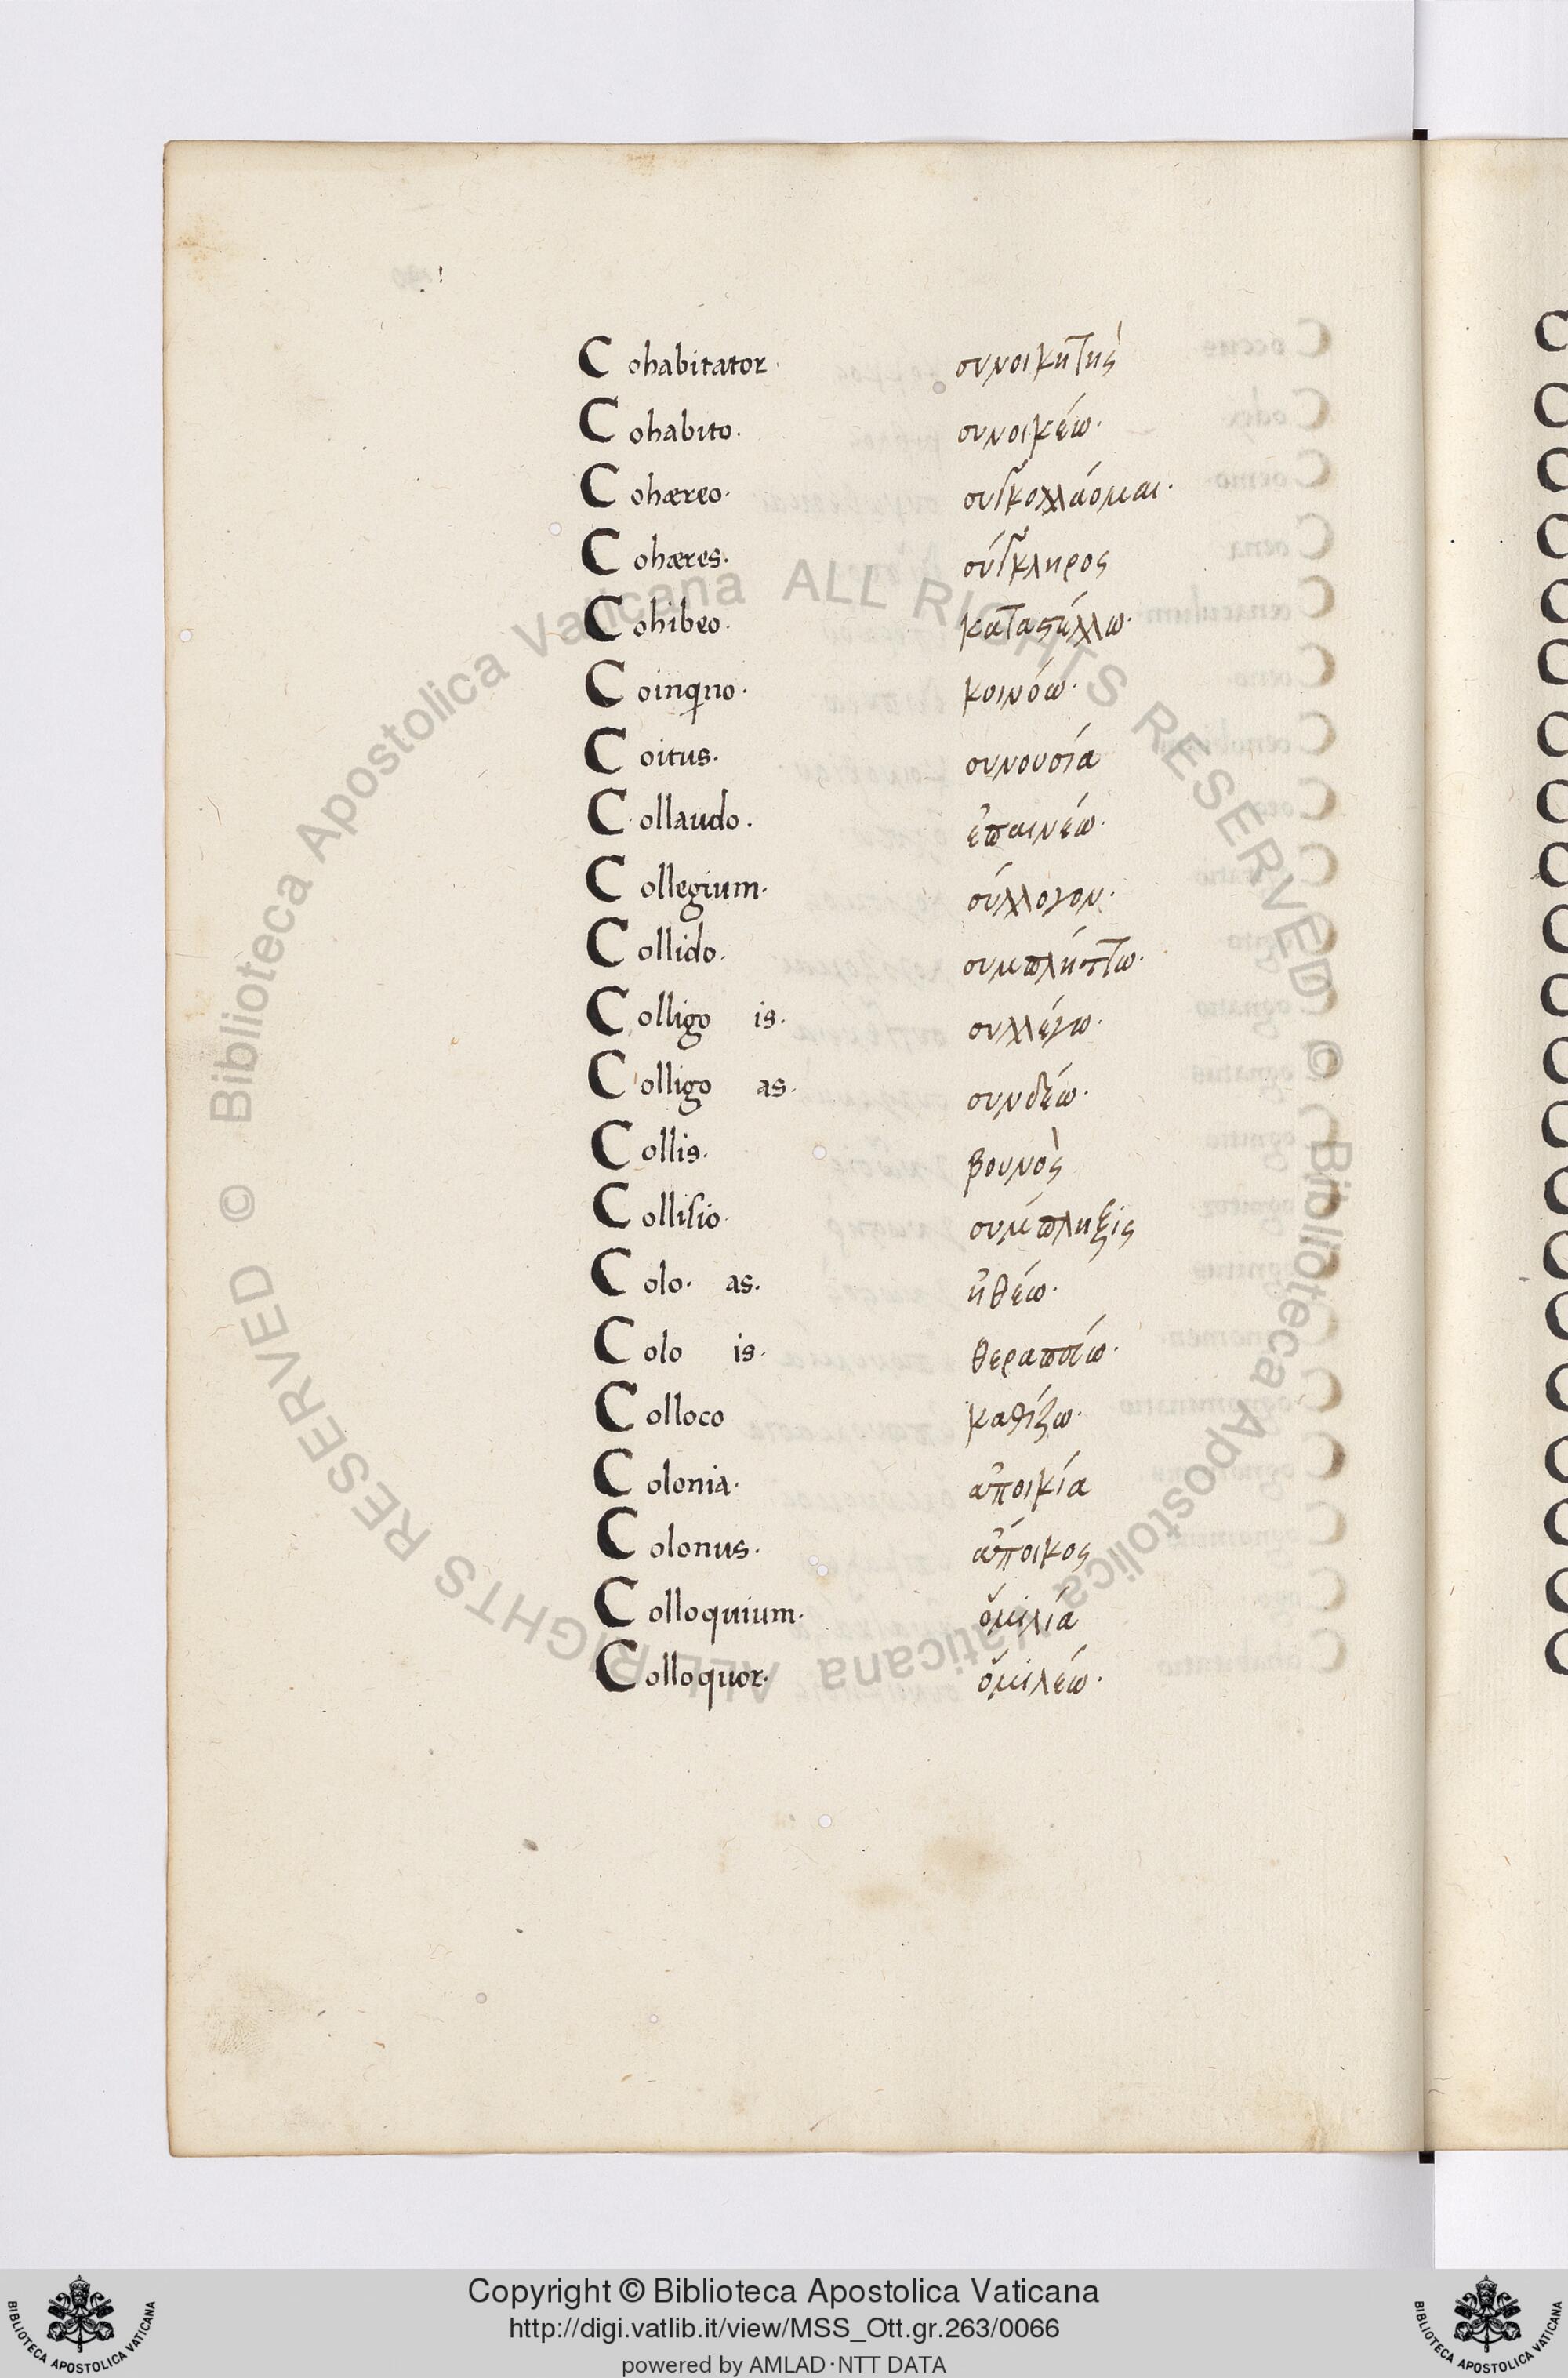 Cohabitator. συνοικητὴς
Cohabito. συνοικέω.
Cohæreo. συγκολλάομαι.
Cohæres. σύγκληρος
Cohibeo. καταστέλλω.
Coinqno. κοινόω.
Coitus. συνουσία
Collaudo. ἐπαινέω.
Collegium. σύλλογον.
Collido. συμπλήττω.
Colligo is. συλλέγω.
Colligo as. συνδέω.
Collis. βουνὸς
Collisio. σύμπληξις
Colo. as. ἠθέω.
Colo is. θεραπεύω.
Colloco καθίζω.
Colonia. ἀποικία
Colonus. ἄποικος
Colloquium. ὁμιλία
Colloquor. ὁμιλέω.
© Biblioteca Apostolica Vaticana ALL RIGHTS RESERVED © Biblioteca Apostolica Vaticana ALL RIGHTS RESERVED
Copyright © Biblioteca Apostolica Vaticana
http://digi.vatlib.it/view/MSS_Ott.gr.263/0066
powered by AMLAD·NTT DATA
BIBLIOTECA APOSTOLICA VATICANA
BIBLIOTECA APOSTOLICA VATICANA